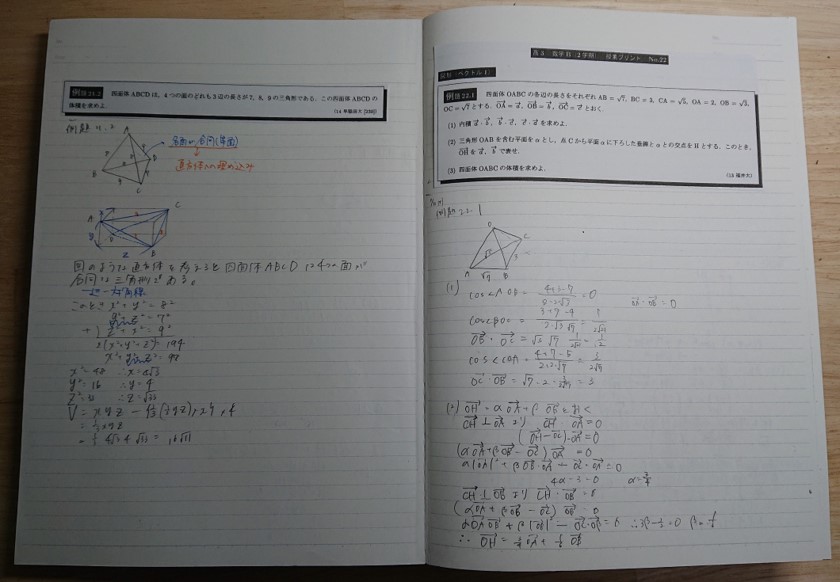 例題21.2 四面体ABCDは,4つの面のどれも3辺の長さが7,8,9の三角形である.この四面体ABCDの
体積を求めよ.
例題21.2
A
B
C
D
各面が合同(等面)
直方体への埋め込み
A
C
B
図のように直方体を考えると四面体ABCDは4つの面が
合同な三角形である。
このとき x²+y²=8²
y²+z²=7²
+) z²+x²=9²
2(x²+y²+z²)=194
x²+y²+z²=97
x²=48 ∴x=4√3
y²=16 ∴y=4
z²=33 ∴z=√33
= 1/3 xyz
= 1/3 4√3 4 √33 = 16√11
高3 数学B(2学期) 授業プリント No.22
例題22.1 四面体OABCの各辺の長さをそれぞれAB=√7, BC=3, CA=√5, OA=2, OB=√3,
OC=√7とする. OA=a, OB=b, OC=cとおく.
(1) 内積a・b, b・c, c・aを求めよ.
(2) 三角形OABを含む平面をαとし,点Cから平面αに下ろした垂線とαとの交点をHとする.このとき,
OHをa, bで表せ.
(3) 四面体OABCの体積を求めよ.
例題22-1
O
C
A
B
√7
3
(1) cos∠AOB = (4+3-7)/(2・2・√3) = 0 OA・OB=0
cos∠BOC = (3+7-9)/(2・√3・√7) = 1/(2√21)
OB・OC = √3 √7 1/(2√21) = 1/2
cos∠COA = (4+7-5)/(2・2√7) = 3/(2√7)
= √7・2・3/(2√7) = 3
(2) OH = αOA + βOB とおく
CH⊥OA より CH・OA=0
(OH-OC)・OA=0
(αOA+βOB-OC) OA =0
α|OA|²+βOB・OA-OC・OA=0
4α-3=0 α=3/4
CH⊥OB より CH・OB=0
(αOA+βOB-OC) OB =0
αOA OB + β|OB|² - OC・OB=0 ∴3β-1/2=0 β=1/6
∴ OH = 3/4 OA + 1/6 OB